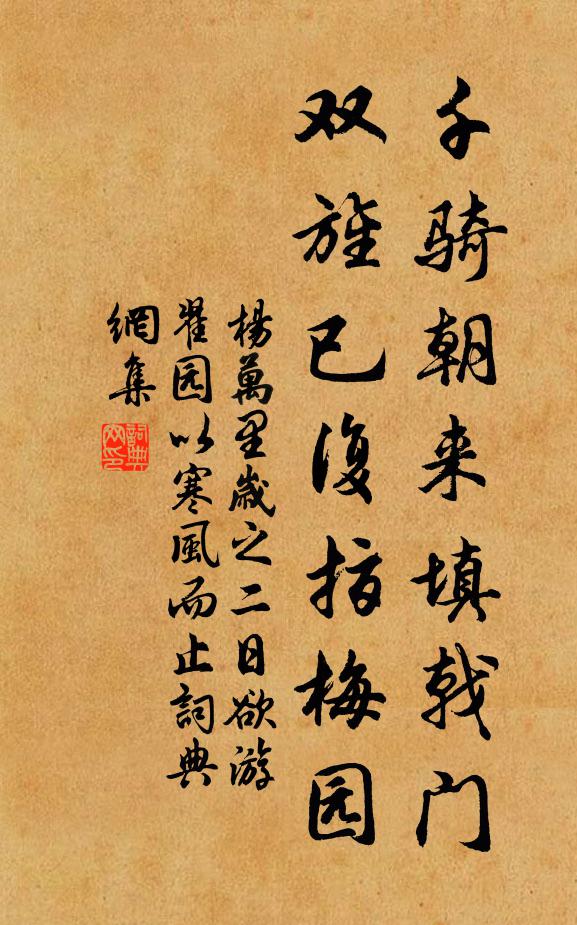 千骑朝来填戟门
双旌已復指梅园
楊萬里歲之二日欲游
翟园以寒風而止詞典
網集
詞典
网印